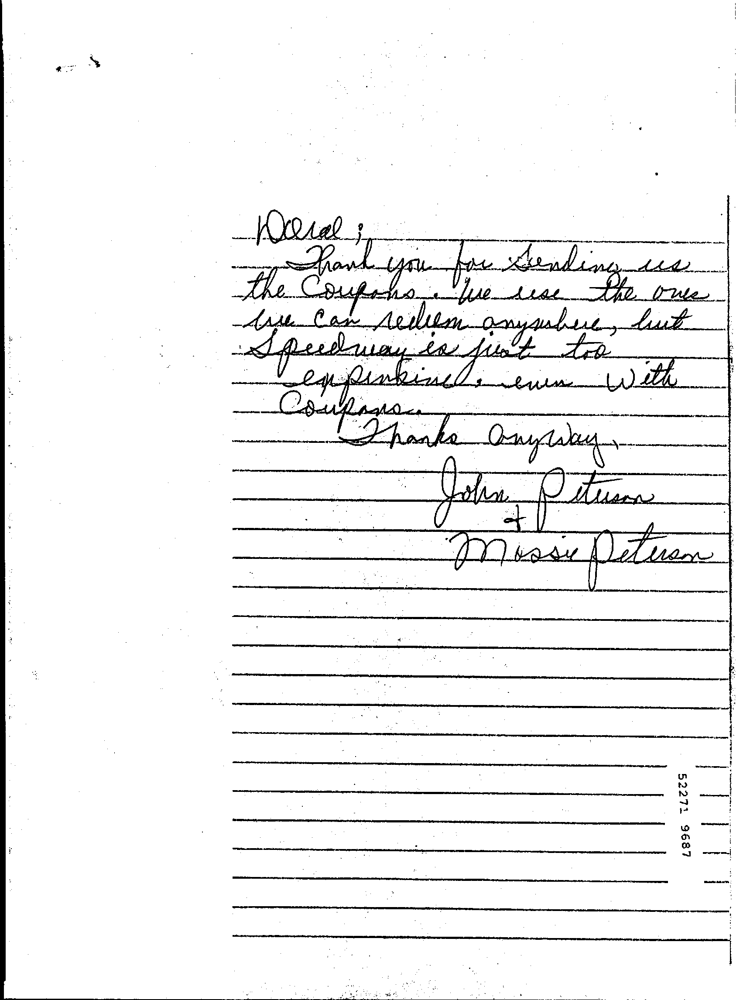 Doral;
Thank you for sending us
the Coupons. We use the ones
we can redeem anywhere, but
Speedway is just too
expinsive. even With
Coupons.
Thanks Anyway,
John Peterson
+
Mossie Peterson
52271 9687